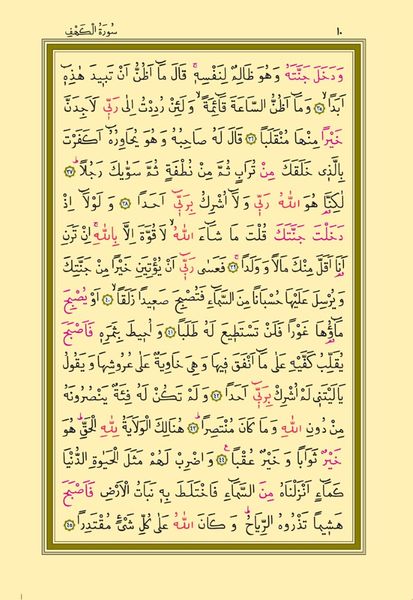 ١٠ سُورَةُ الْكَهْفِ
وَدَخَلَ جَنَّتَهُ وَهُوَ ظَالِمٌ لِنَفْسِهٖۚ قَالَ مَٓا اَظُنُّ اَنْ تَبٖيدَ هٰذِهٖٓ
اَبَدًاۙ ﴿٣٥﴾ وَمَٓا اَظُنُّ السَّاعَةَ قَٓائِمَةًۙ وَلَئِنْ رُدِدْتُ اِلٰى رَبّٖى لَاَجِدَنَّ
خَيْرًا مِنْهَا مُنْقَلَبًاۚ ﴿٣٦﴾ قَالَ لَهُ صَاحِبُهُ وَهُوَ يُحَاوِرُهُٓ اَكَفَرْتَ
بِالَّذٖى خَلَقَكَ مِنْ تُرَابٍ ثُمَّ مِنْ نُطْفَةٍ ثُمَّ سَوّٰيكَ رَجُلًاۜ ﴿٣٧﴾
لٰكِنَّا۬ هُوَ اللّٰهُ رَبّٖى وَلَٓا اُشْرِكُ بِرَبّٖٓى اَحَدًا ﴿٣٨﴾ وَلَوْلَٓا اِذْ
دَخَلْتَ جَنَّتَكَ قُلْتَ مَا شَٓاءَ اللّٰهُۙ لَا قُوَّةَ اِلَّا بِاللّٰهِۚ اِنْ تَرَنِ
اَنَا۬ اَقَلَّ مِنْكَ مَالًا وَوَلَدًاۚ ﴿٣٩﴾ فَعَسٰى رَبّٖٓى اَنْ يُؤْتِيَنِ خَيْرًا مِنْ جَنَّتِكَ
وَيُرْسِلَ عَلَيْهَا حُسْبَانًا مِنَ السَّمَٓاءِ فَتُصْبِحَ صَعٖيدًا زَلَقًاۙ ﴿٤٠﴾ اَوْ يُصْبِحَ
مَٓاؤُ۬هَا غَوْرًا فَلَنْ تَسْتَطٖيعَ لَهُ طَلَبًا ﴿٤١﴾ وَاُحٖيطَ بِثَمَرِهٖ فَاَصْبَحَ
يُقَلِّبُ كَفَّيْهِ عَلٰى مَٓا اَنْفَقَ فٖيهَا وَهِىَ خَاوِيَةٌ عَلٰى عُرُوشِهَا وَيَقُولُ
يَا لَيْتَنٖى لَمْ اُشْرِكْ بِرَبّٖٓى اَحَدًا ﴿٤٢﴾ وَلَمْ تَكُنْ لَهُ فِئَةٌ يَنْصُرُونَهُ
مِنْ دُونِ اللّٰهِ وَمَا كَانَ مُنْتَصِرًاۜ ﴿٤٣﴾ هُنَالِكَ الْوَلَايَةُ لِلّٰهِ الْحَقِّۜ هُوَ
خَيْرٌ ثَوَابًا وَخَيْرٌ عُقْبًا۟ ﴿٤٤﴾ وَاضْرِبْ لَهُمْ مَثَلَ الْحَيٰوةِ الدُّنْيَا
كَمَٓاءٍ اَنْزَلْنَاهُ مِنَ السَّمَٓاءِ فَاخْتَلَطَ بِهٖ نَبَاتُ الْاَرْضِ فَاَصْبَحَ
هَشٖيمًا تَذْرُوهُ الرِّيَاحُۜ وَكَانَ اللّٰهُ عَلٰى كُلِّ شَىْءٍ مُقْتَدِرًا ﴿٤٥﴾